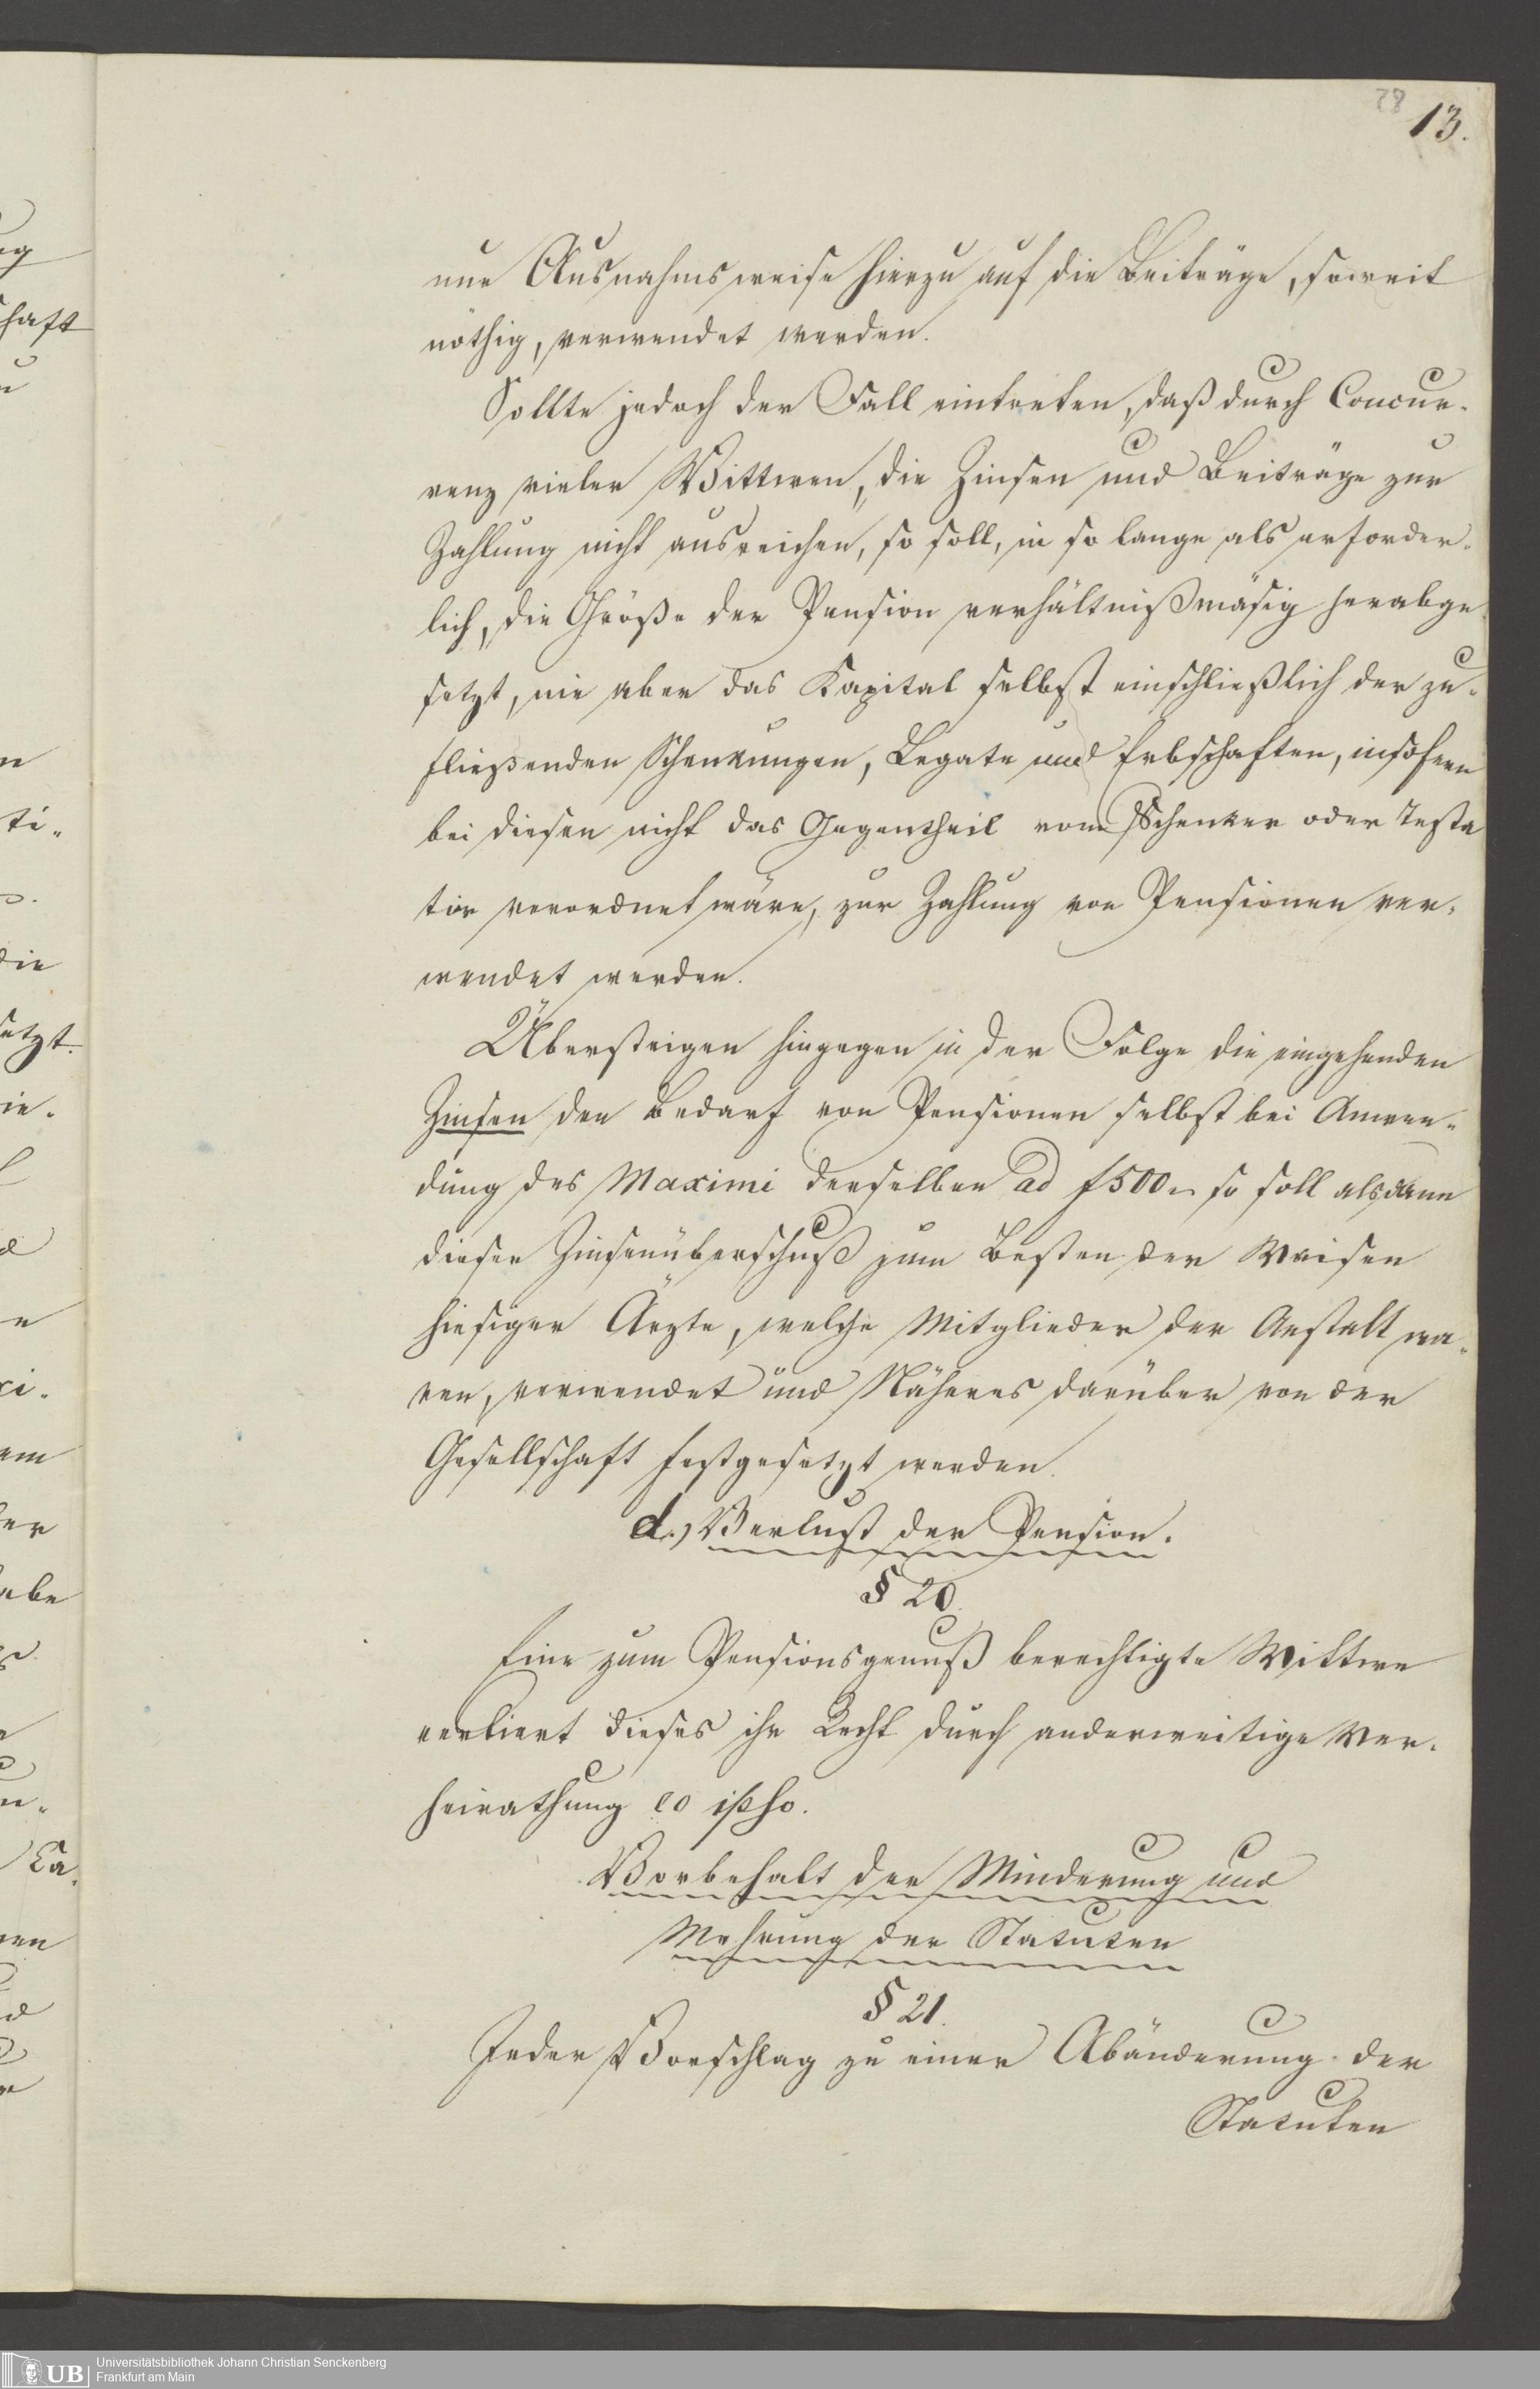 28
13.
nur Ausnahmsweise hierzu auf die Beiträge, soweit
nöthig, verwendet werden.
Sollte jedoch der Fall eintreten, daß durch Concur-
renz vieler Wittwen, die Zinsen und Beiträge zur
Zahlung nicht ausreichen, so soll, in so lange als erforder-
lich, die Größe der Pension verhältnißmäsig herabge-
setzt, nie aber das Kapital selbst einschließlich der zu-
fließenden Schenkungen, Legate und Erbschaften, insofern
bei diesen nicht das Gegentheil vom Schenker oder Testa
tor verordnet wäre, zur Zahlung von Pensionen ver-
wendet werden.
Übersteigen hingegen in der Folge die eingehenden
Zinsen den Bedarf von Pensionen selbst bei Anwen-
dung des Maximi derselben ad f 500 so soll alsdann
dieser Zinsenüberschuß zum Besten der Waisen
hiesiger Ärzte, welche Mitglieder der Anstalt wa-
ren, verwendet und Näheres darüber von der
Gesellschaft festgesetzt werden.
d.) Verlust der Pension.
§ 20.
Eine zum Pensionsgenuß berechtigte Wittwe
verliert dieses ihr Recht durch anderweitige Ver-
heirathung eo ipso.
Vorbehalt der Minderung und
Mehrung der Statuten
§ 21.
Jeder Vorschlag zu einer Abänderung der
Statuten
Universitätsbibliothek Johann Christian Senckenberg
Frankfurt am Main
UB